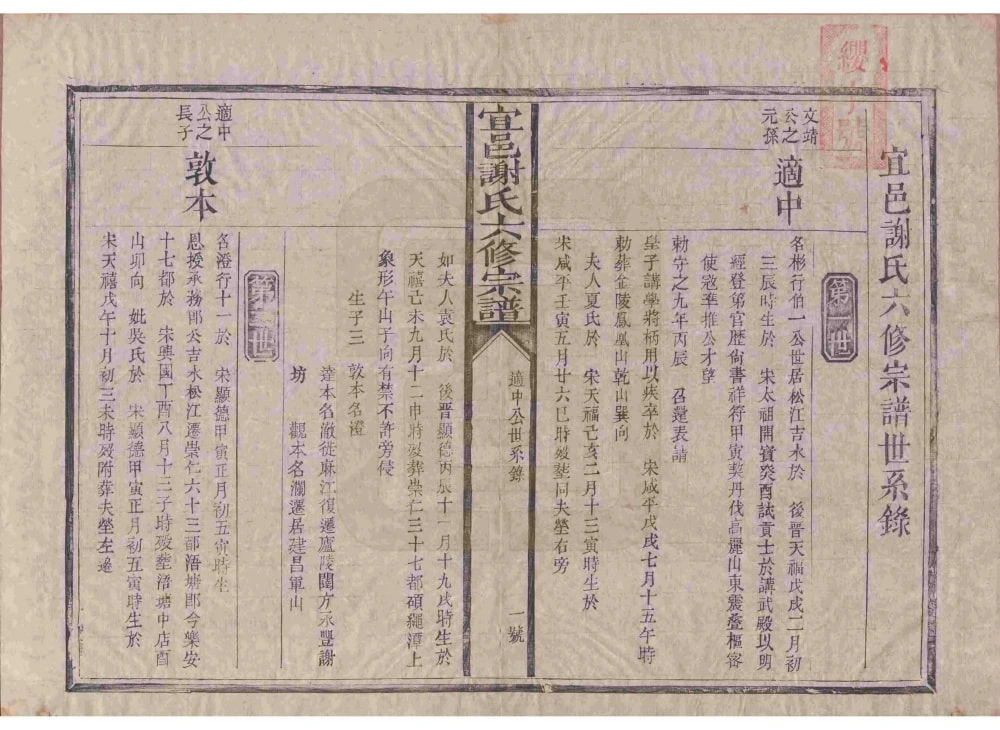 宜邑謝氏六修宗譜世系錄
第一世
文靖
公之
元孫
適中
名彬行伯一公世居松江吉水於 後晉天福戊戌二月初
三辰時生於 宋太祖開寶癸酉試貢士於講武殿以明
經登第官歷尙書祥符甲寅契丹伐高麗山東震疊樞密
使寇準推公才望
勅守之九年丙辰 召還表請
皇子講學將柄用以疾卒於 宋咸平戊戌七月十五午時
勅葬金陵鳳凰山乾山巽向
夫人夏氏於 宋天福己亥二月十三寅時生於
宋咸平壬寅五月廿六巳時歿塟同夫塋右旁
宜邑謝氏六修宗譜
適中公世系錄
一號
如夫人袁氏於 後晉顯德丙辰十一月十九戌時生於
天禧己未九月十二申時歿葬崇仁三十七都碩繩潭上
象形午山子向有禁不許旁侵
生子三 敦本名澄
達本名澈從麻江復遷廬陵閣方永豐謝
坊 觀本名瀾遷居建昌軍山
第二世
適中
公之
長子
敦本
名澄行十一於 宋顯德甲寅正月初五寅時生
恩授承務郎公吉水松江遷崇仁六十三都浯塘卽今樂安
十七都於 宋興國丁酉八月十三子時歿塟浯塘中店酉
山卯向 妣吳氏於 宋顯德甲寅正月初五寅時生於
宋天禧戊午十月初三未時歿附葬夫塋左邊